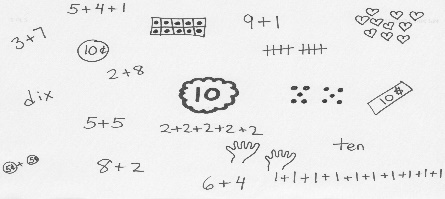 5+4+1
3+7
10¢
9+1
2+8
dix
10
10¢
5+5
2+2+2+2+2
ten
5¢ + 5¢
8+2
6+4
1+1+1+1+1+1+1+1+1+1